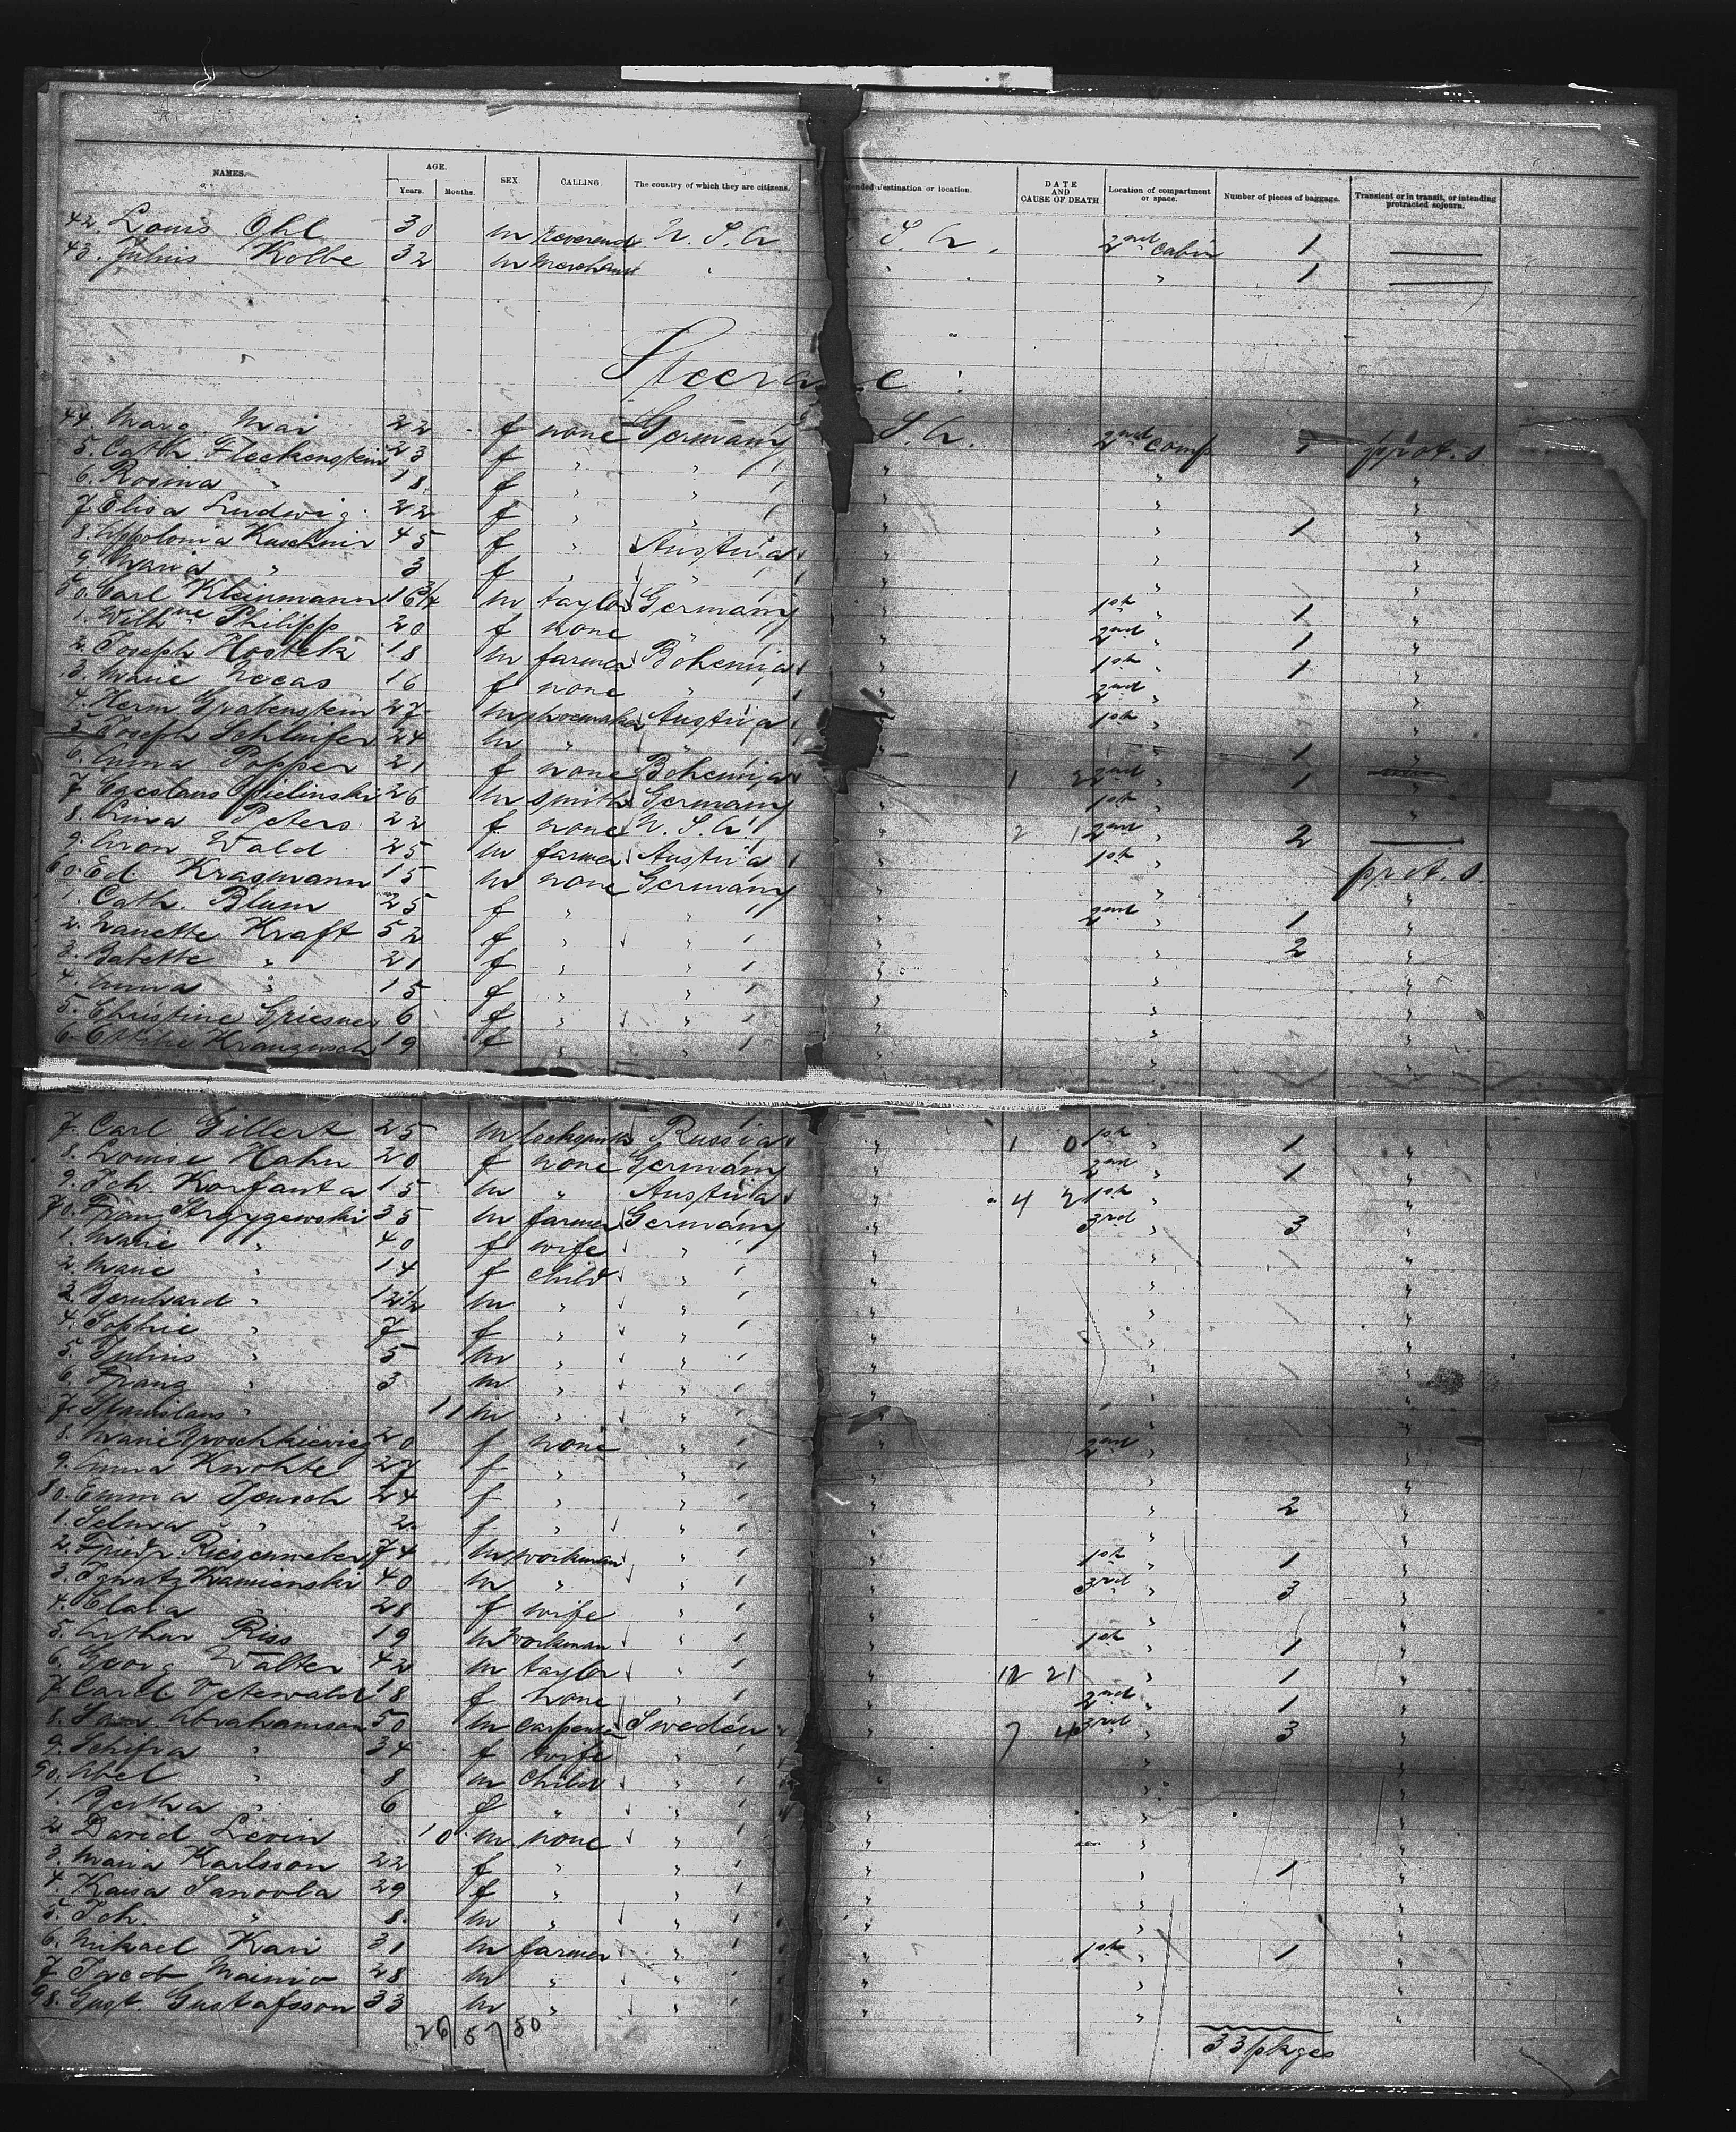 NAMES. AGE. Years. Months. SEX. CALLING. The country of which they are citizens. destination or location. DATE AND CAUSE OF DEATH Location of compartment or space. Number of pieces of baggage. Transient or in transit, or intending protracted sojourn.
42. Louis Ohl 30 m reverend U. S. A. S. A. 2nd Cabin 1 —
43. Julius Kolbe 32 m merchant " " " 1 —
Steerage:
44. Marg. Mai 22 f none Germany S. A. 2nd comp prot. s
5. Cath. Fleckenstein 23 f " " " " "
6. Rosina " 18 f " " " " "
7. Elisa Ludwig 22 f " " " " 1 "
8. Appolonia Kuschnir 45 f " Austria " " "
9. Maria " 3 f " " " " "
50. Carl Kleinmann 16 3/4 m taylor Germany " 1st " 1 "
1. Wilhne Philipp 20 f none " " 2nd " 1 "
2. Joseph Hostek 18 m farmer Bohemia " 1st " 1 "
3. Marie Necas 16 f none " " 2nd " "
4. Herm Grabenstein 27 m shoemaker Austria " 1st " "
5. Joseph Schleifer 24 m " " 1 "
6. Anna Popper 21 f none Bohemia " 1 2 2nd " 1 "
7. Egeslaus Zielinski 26 m smith Germany " 1st " "
8. Lina Peters 22 f none U. S. A. " 2 1 2nd " 2 —
9. Aron Wald 25 m farmer Austria " 1st " prot. s.
60. Ed. Krasmann 15 m none Germany " " "
1. Cath. Blum 25 f " " " 2nd " 1 "
2. Nanette Kraft 52 f " " " " 2 "
3. Babette " 21 f " " " " "
4. Anna " 15 f " " " " "
5. Christine Griesmer 6 f " " " " "
6. Ottilie 19 f " " " " "
7. Carl Gillert 25 m locksmith Russia " 1 0 1st " 1 "
8. Louise Hahn 20 f none Germany " 2nd " 1 "
9. Joh. Korfanta 15 m " Austria " 4 2 1st " "
70. Franz Strzyzewski 35 m farmer Germany " 3rd " 3 "
1. Marie " 40 f wife " " " "
2. Marie " 14 f child " " " "
3. Bernhard " 12 1/2 m " " " " "
4. Sophie " 7 f " " " " "
5. Julius " 5 m " " " " "
6. Franz " 3 m " " " " "
7. Stanislaus " 11 m " " " " "
8. Marie 20 f none " " 2nd " "
9. Anna Knohte 27 f " " " " "
80. Emma Jensch 24 f " " " " 2 "
1. Selma " 2 f " " " " "
2. Friedr. Rieschweber 74 m workman " " 1st " 1 "
3. Ignatz Kamienski 40 m " " " 3rd " 3 "
4. Clara " 28 f wife " " " "
5. Arthur Riss 19 m workman " " 1st " 1 "
6. Georg Walter 42 m taylor " " 12 21 " 1 "
7. Carol. 18 f none " " 2nd " 1 "
8. Abrahamson 50 m carpenter Sweden " 7 4 3rd " 3 "
9. Schifra " 34 f wife " " " "
90. Abel " 8 m child " " " "
1. Bertha " 6 f " " " " "
2. David Levin 10 m none " " " "
3. Maria Karlsson 22 f " " " " 1 "
4. Kaisa Sanoola 29 f " " " " "
5. Joh. " 8 m " " " " "
6. Mikael Kari 31 m farmer " " 1st " 1 "
7. Jacob Mainio 28 m " " " " "
98. Gust. Gustafsson 33 m " " " "
33 pkges